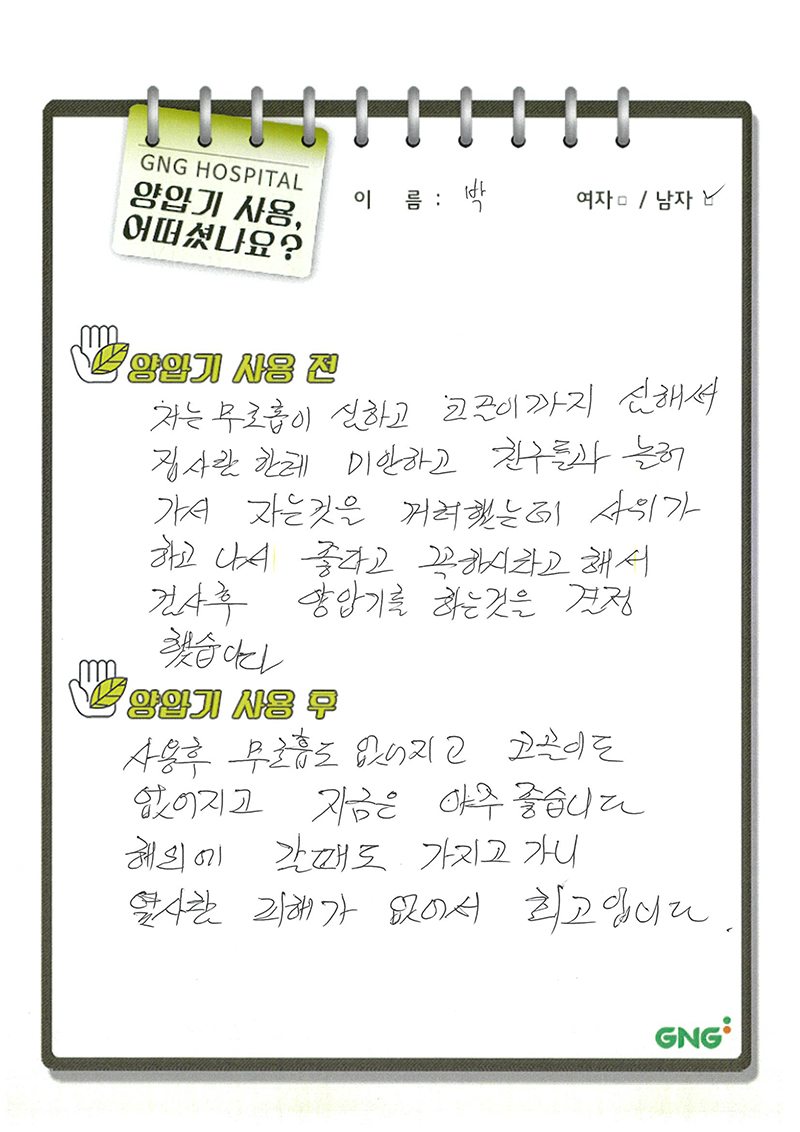 GNG HOSPITAL
양압기 사용,
어떠셨나요?
이 름 : 박 여자□ / 남자☑
양압기 사용 전
자는 무호흡이 심하고 코골이까지 심해서
집사람 한테 미안하고 친구들과 놀러
가서 자는것을 꺼려했는데 사위가
하고 나서 좋다고 꼭하시라고 해서
검사후 양압기를 하는것을 결정
했습니다
양압기 사용 후
사용후 무호흡도 없어지고 코골이도
없어지고 지금은 아주 좋습니다
해외에 갈때도 가지고 가니
옆사람 피해가 없어서 최고입니다.
GNG